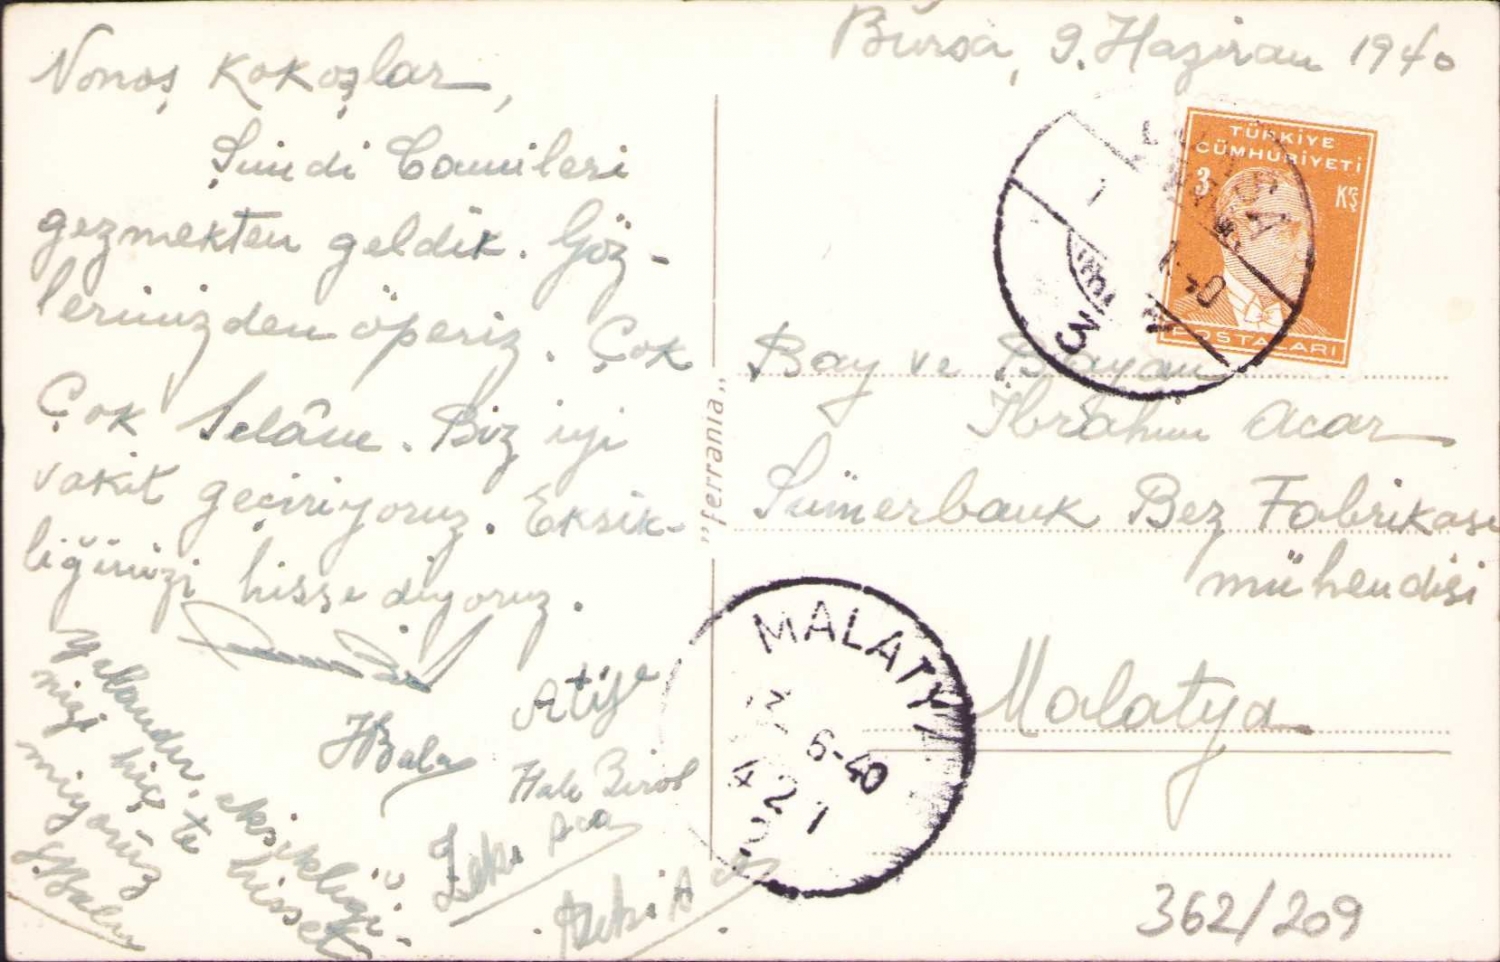 Bursa, 9. Haziran 1940
Nonoş Kokoşlar,
Şimdi Camileri
gezmekten geldik. Göz-
lerinizden öperiz. Çok
Çok Selâm. Biz iyi
vakit geçiriyoruz. Eksik-
liğinizi hissediyoruz.
Atiye
HBalı
Hale Birol
Zeki Aca
Zeki A
Yalandır, eksikliği-
nizi hiç te hisset
miyoruz
S.Balı
"ferrania"
TÜRKİYE
CÜMHURİYETİ
3 Krş
POSTALARI
Bay ve Bayan
İbrahim Acar
Sümerbank Bez Fabrikası
mühendisi
Malatya
MALATYA
6-40
421
362/209